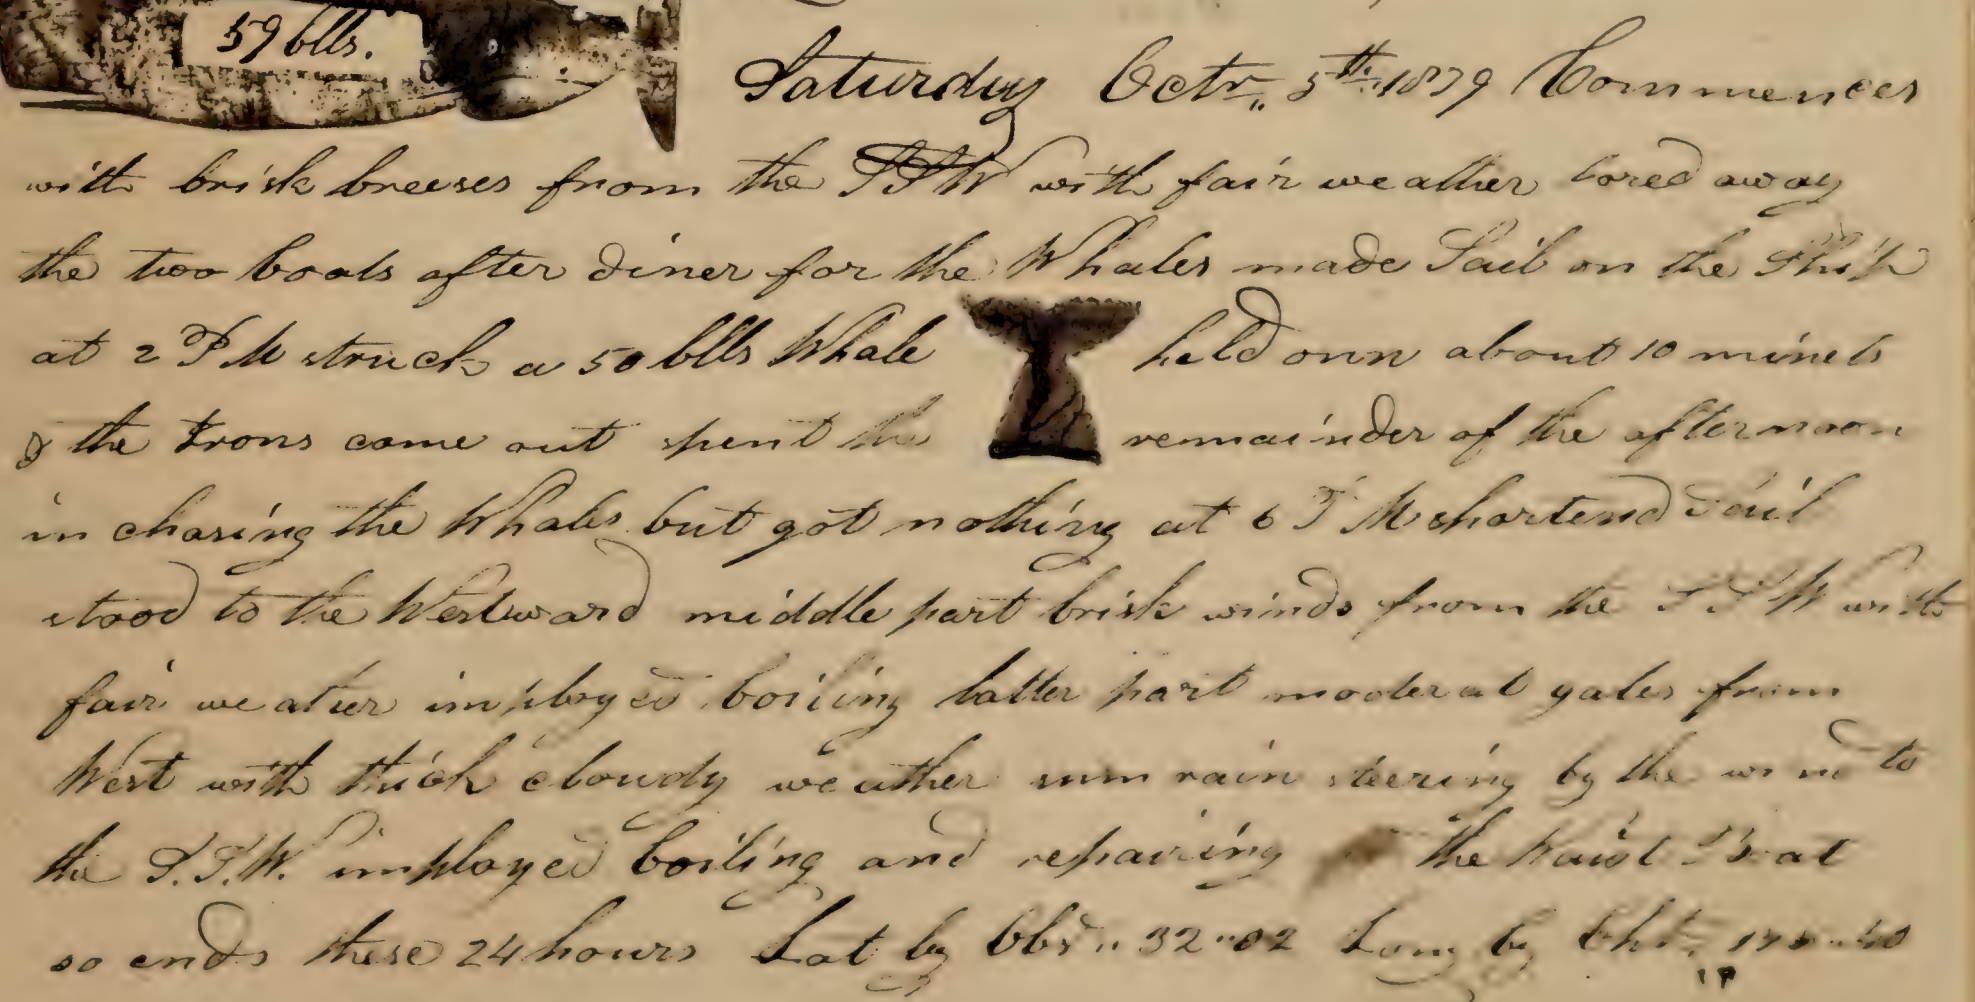 59 blls.
Saturday Octr 5th 1839 Commences
with brisk breeses from the SSW with fair weather lored away
the two boats after diner for the Whales made Sail on the Ship
at 2 P M struck a 50 blls Whale held onn about 10 minets
& the Irons came out spent the remainder of the afternoon
in chasing the Whales but got nothing at 6 P M shortend Sail
stood to the Westward middle part brisk winds from the S S W with
fair weather imployed boiling latter part moderat gales from
West with thick cloudy weather rain steering by the wind to
the S.S.W. imployed boiling and repairing the Waist Boat
so ends these 24 hours Lat by Obs 32"02 Long by